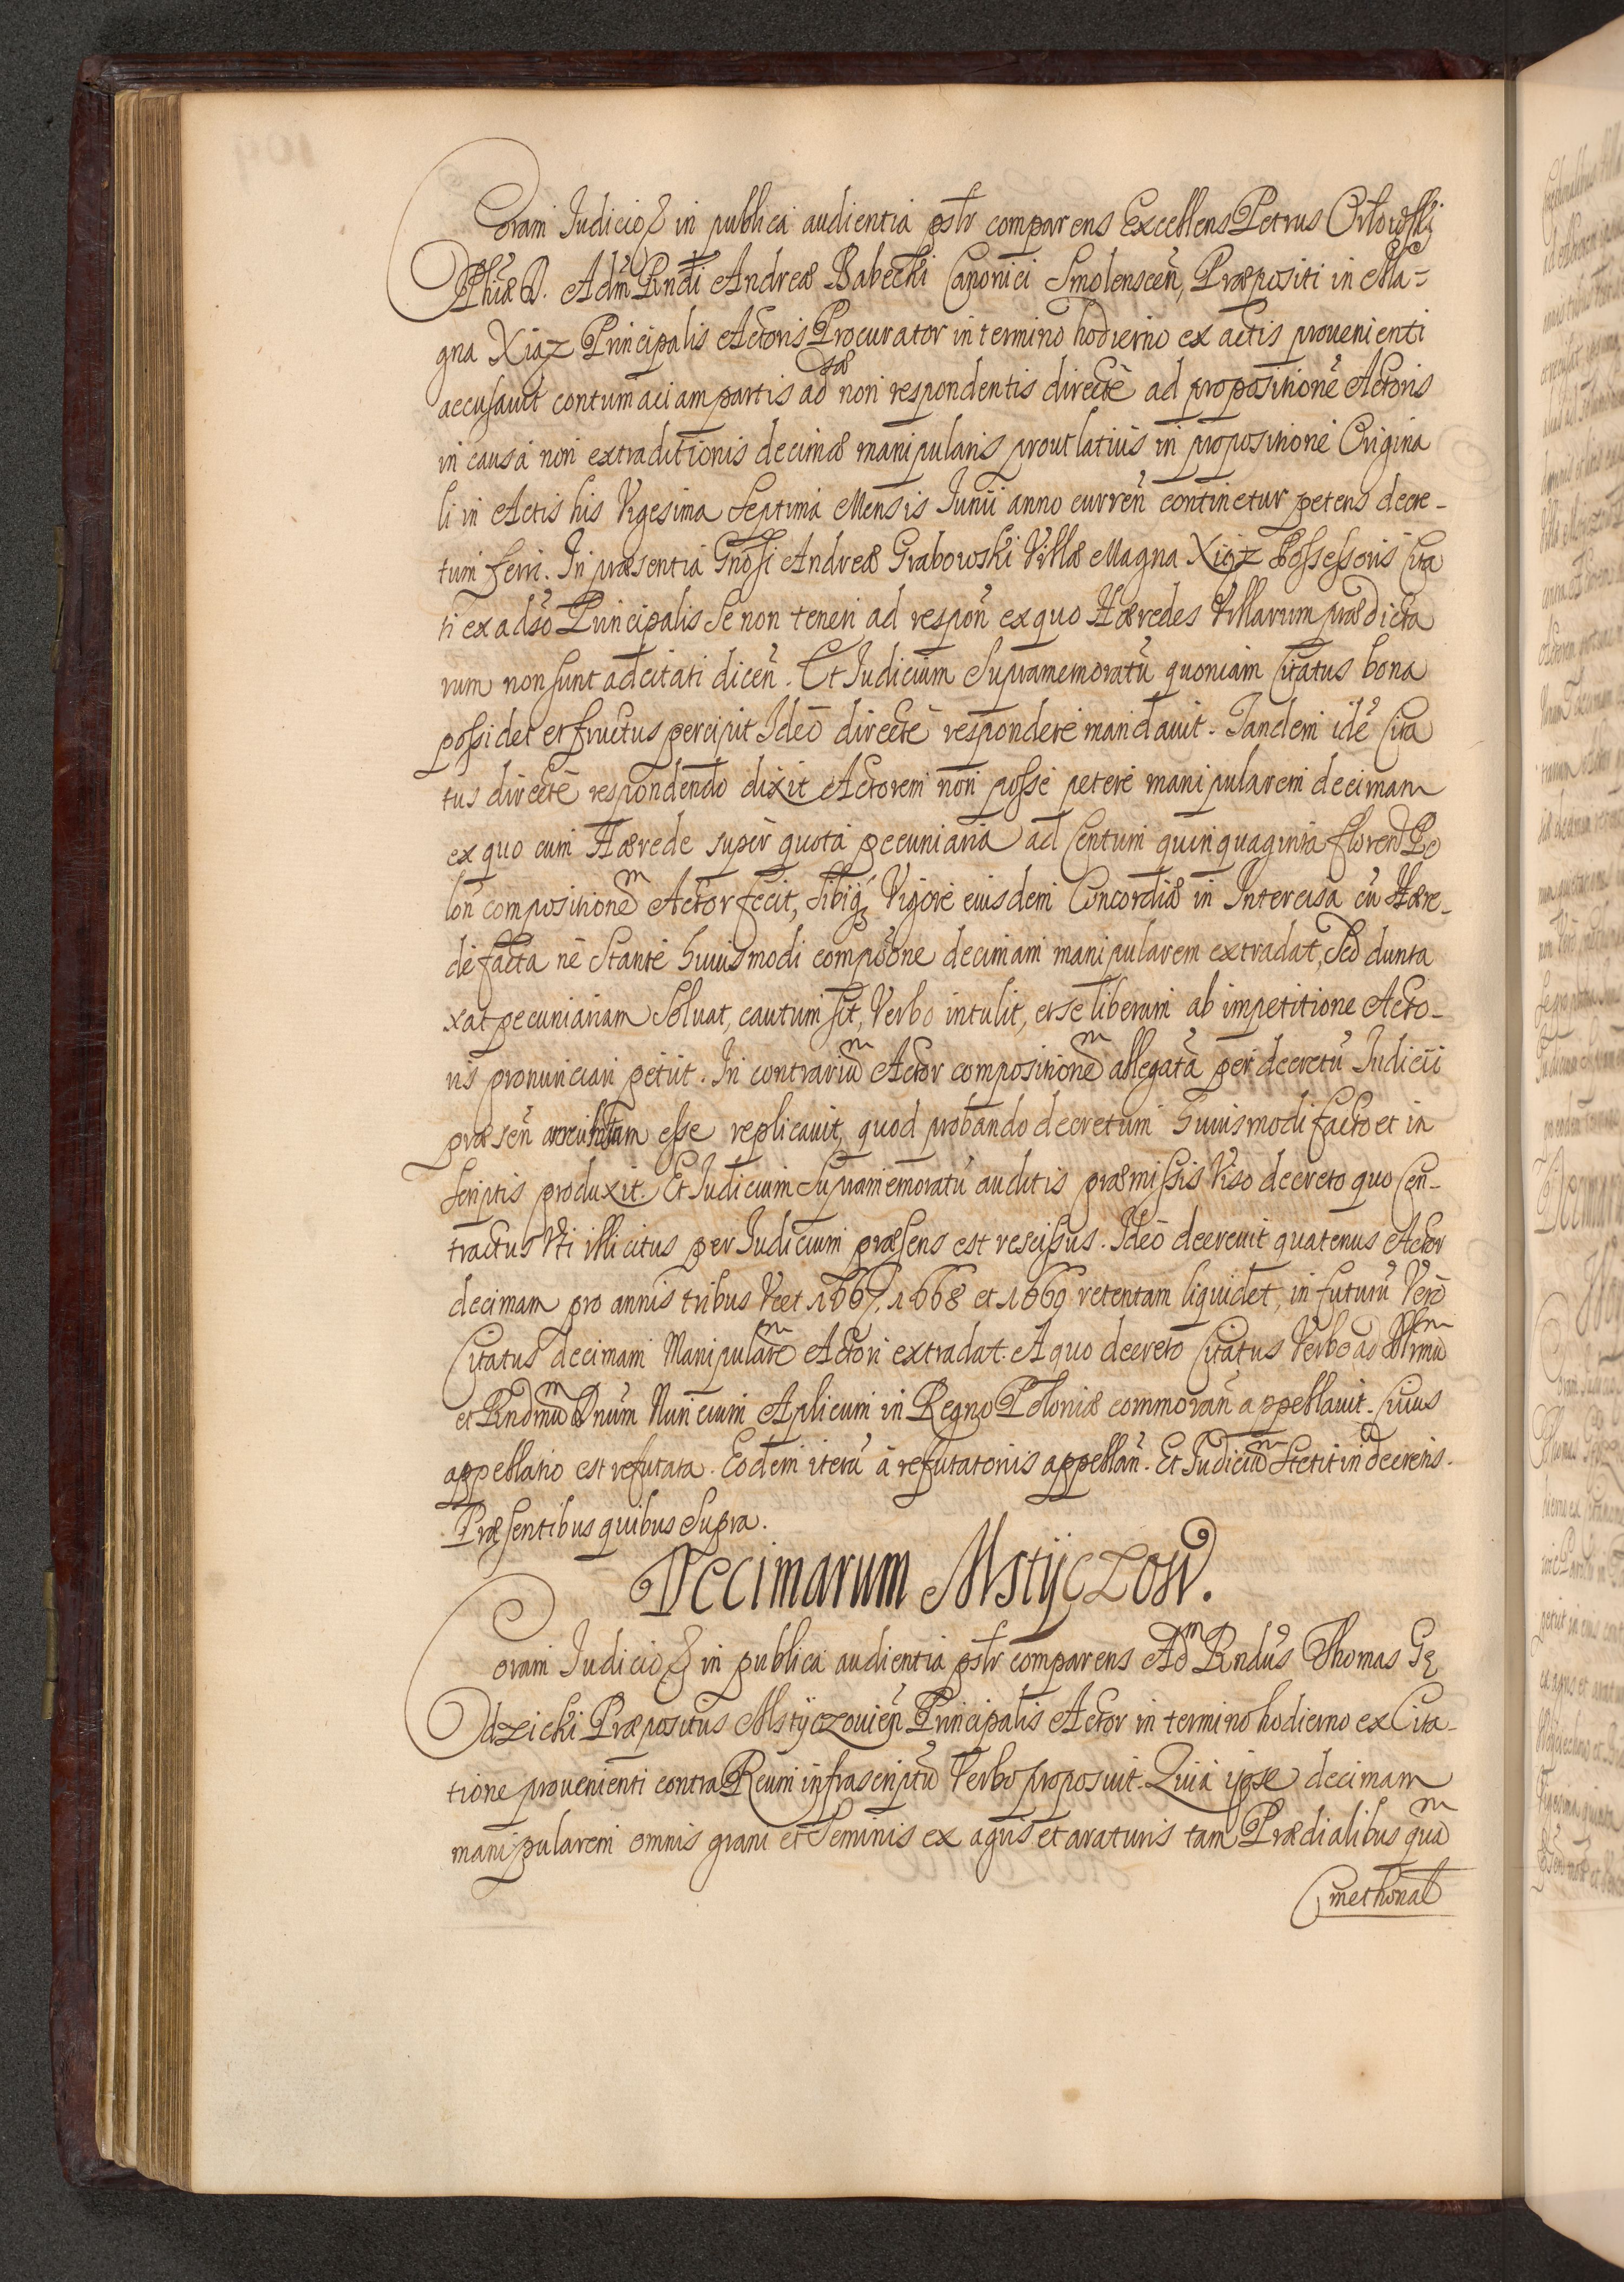 Coram Judicio & in publica audientia pstr comparens Excellens Petrus Orłowski
Phiæ D. Adm Rndi Andreæ Babecki Canonici Smolenscen, Præpositi in Ma=
gna Xiąz Principalis Actoris Procurator in termino hodierno ex actis provenienti
accusauit contumaciam partis adsæ non respondentis directè ad propositionē Actoris
in causa non extraditionis decimæ manipularis prout latius in propositione Origina
li in Actis his Vigesima Septima Mensis Junii anno curren continetur petens decre-
tum ferri. In præsentia Gnosi Andreæ Grabowski Villæ Magna Xiąz Possessoris Cita
ti ex adso Principalis se non teneri ad respon ex quo Hæredes Villarum prædicta
rum non sunt adcitati dicen. Et Judicium Supramemoratū quoniam Citatus bona
possidet et fructus percipit Ideò directè respondere mandauit. Tandem idē Cita
tus directè respondendo dixit Actorem non posse petere manipularem decimam
ex quo cum Hærede super quota pecuniaria ad Centum quinquaginta floren Po
lon compositionem Actor fecit, sibiq Vigore eiusdem Concordiæ in Intercisa cū Hære-
de facta nè Stante huiusmodi compõne decimam manipularem extradat, Sed dunta
xat pecuniariam Soluat, cautum sit, Verbo intulit, et se liberum ab impetitione Acto-
ris pronunciari petiit. In contrarium Actor compositionem allegatā per decretū Judicii
præsen esse replicauit, quod probando decretum huiusmodi facto et in
scriptis produxit. Et Judicium Supramemoratū auditis præmissis Viso decreto quo Con-
tractus Vti illicitus per Judicium præsens est rescissus. Ideò decreuit quatenus Actor
decimam pro annis tribus Vcet 1667. 1668 et 1669 retentam liquidet, in futurū Verò
Citatus decimam Manipularem Actori extradat. A quo decreto Citatus Verbo ad Illrmum
et Rndmum Dnum Nuncium Aplicum in Regno Poloniæ commoran appellauit. Cuius
appellatio est refutata. Eodem iterū à refutatoriis appellan. Et Judicium Stetit in decretis.
Præsentibus quibus Supra.
Decimarum Mstyczow.
Coram Judicio & in publica audientia pstr comparens Adm Rndus Thomas Gę
dzicki Præpositus Mstyczouien Principalis Actor in termino hodierno ex Cita-
tione provenienti contra Reum infrascriptū Verbo proposuit. Quia ipse decimam
manipularem omnis grani et Seminis ex agris et araturis tam Prædialibus quam
Cmethonal